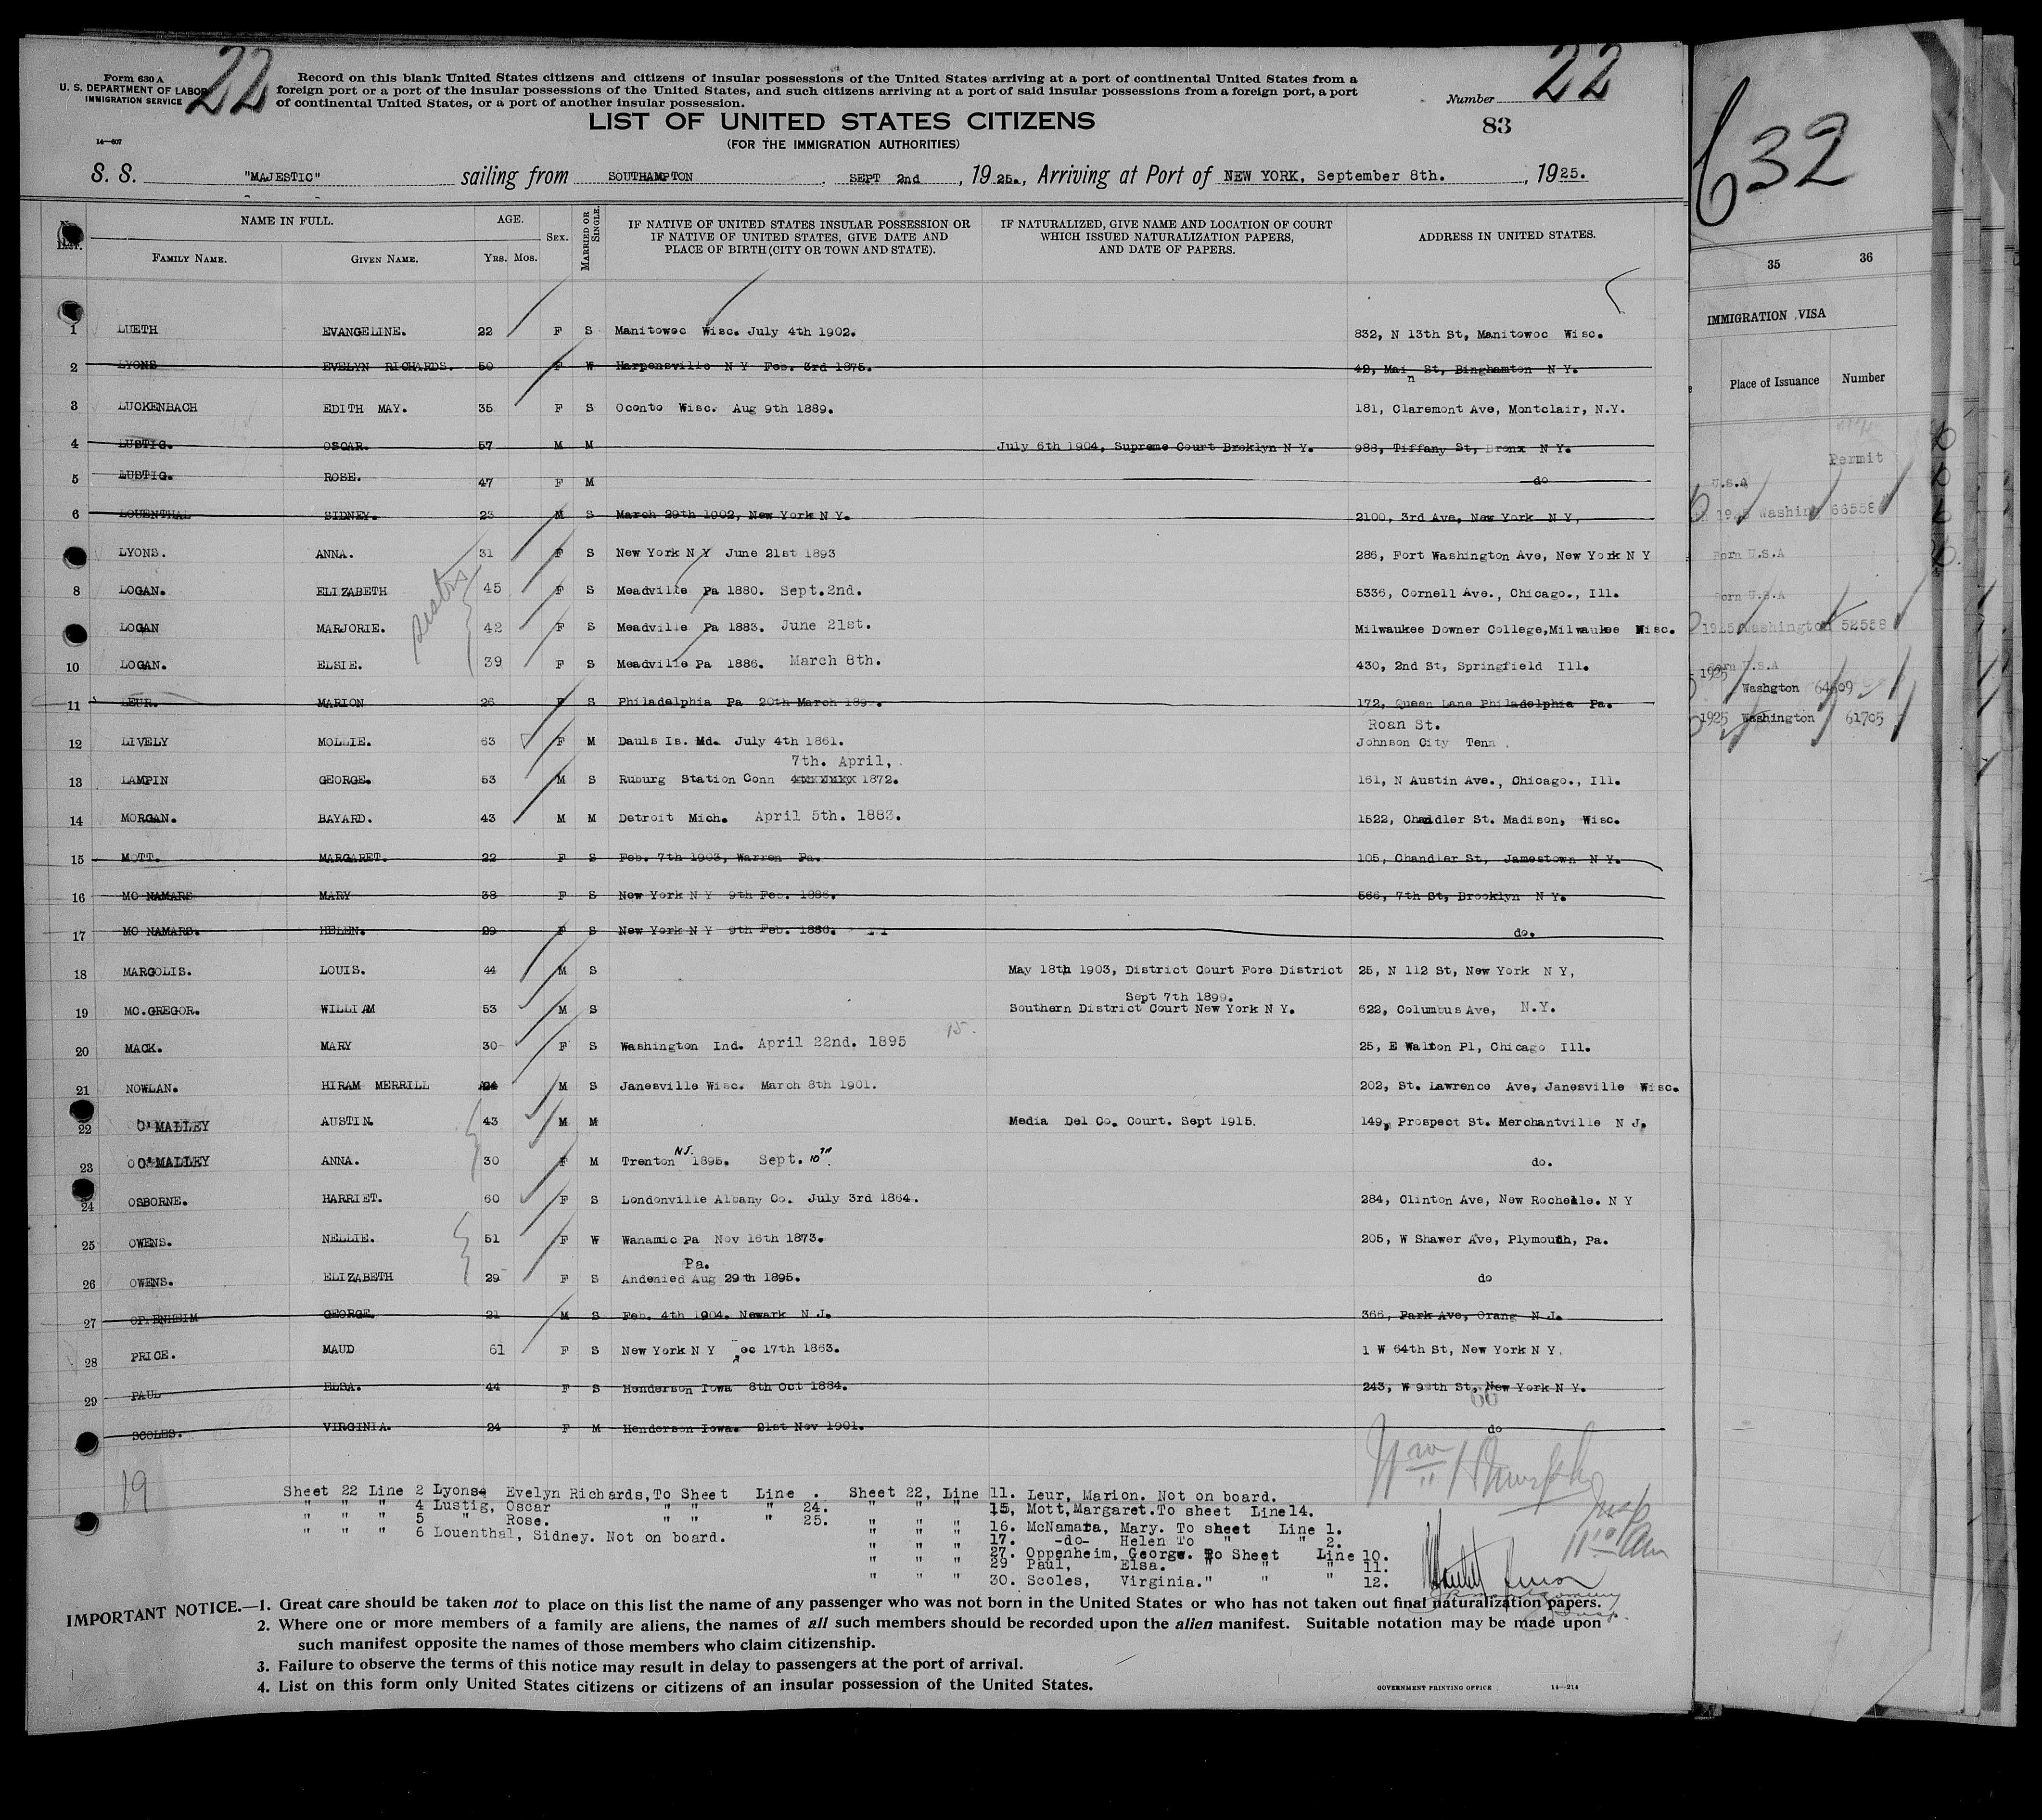 Form 630 A
U. S. DEPARTMENT OF LABOR
IMMIGRATION SERVICE
22
Record on this blank United States citizens and citizens of insular possessions of the United States arriving at a port of continental United States from a
foreign port or a port of the insular possessions of the United States, and such citizens arriving at a port of said insular possessions from a foreign port, a port
of continental United States, or a port of another insular possession.
Number 22
83
LIST OF UNITED STATES CITIZENS
(FOR THE IMMIGRATION AUTHORITIES)
14—607
S. S. "MAJESTIC" sailing from SOUTHAMPTON , SEPT 2nd , 1925., Arriving at Port of NEW YORK, September 8th. , 1925.
NAME IN FULL. AGE. SEX. MARRIED OR SINGLE. IF NATIVE OF UNITED STATES INSULAR POSSESSION OR IF NATIVE OF UNITED STATES, GIVE DATE AND PLACE OF BIRTH (CITY OR TOWN AND STATE). IF NATURALIZED, GIVE NAME AND LOCATION OF COURT WHICH ISSUED NATURALIZATION PAPERS, AND DATE OF PAPERS. ADDRESS IN UNITED STATES.
FAMILY NAME. GIVEN NAME. YRS. MOS.
1 LUETH EVANGELINE. 22 F S Manitowoc Wisc. July 4th 1902. 832, N 13th St, Manitowoc Wisc.
2 LYONS EVELYN RICHARDS. 50 F W Harpensville N Y Feb. 3rd 1875. 42, Main St, Binghamton N Y.
3 LUCKENBACH EDITH MAY. 35 F S Oconto Wisc. Aug 9th 1889. 181, Claremont Ave, Montclair, N.Y.
4 LUSTIG. OSCAR. 57 M M July 6th 1904, Supreme Court Broklyn N Y. 988, Tiffany St, Bronx N Y.
5 LUSTIG. ROSE. 47 F M do
6 LOUENTHAL SIDNEY. 23 M S March 29th 1902, New York N Y. 2100, 3rd Ave, New York N Y,
LYONS. ANNA. 31 F S New York N Y June 21st 1893 286, Fort Washington Ave, New York N Y
8 LOGAN. ELIZABETH 45 F S Meadville Pa 1880. Sept.2nd. 5336, Cornell Ave., Chicago., Ill.
sisters
LOGAN MARJORIE. 42 F S Meadville Pa 1883. June 21st. Milwaukee Downer College,Milwaukee Wisc.
10 LOGAN. ELSIE. 39 F S Meadville Pa 1886. March 8th. 430, 2nd St, Springfield Ill.
11 LEUR. MARION 26 F S Philadelphia Pa 20th March 172, Queen Lane Philadelphia Pa.
Roan St.
12 LIVELY MOLLIE. 63 F M Dauls Is. Md. July 4th 1861. Johnson City Tenn.
7th. April,
13 LAMPIN GEORGE. 53 M S Ruburg Station Conn 1872. 161, N Austin Ave., Chicago., Ill.
14 MORGAN. BAYARD. 43 M M Detroit Mich. April 5th. 1883. 1522, Chandler St. Madison, Wisc.
15 MOTT. MARGARET. 22 F S Feb. 7th 1903, Warren Pa. 105, Chandler St, Jamestown N Y.
16 MC NAMARS MARY 38 F S New York N Y 9th Feb. 1886. 566, 7th St, Brooklyn N Y.
17 MC NAMARS. HELEN. 29 F S New York N Y 9th Feb. 1886. do.
18 MARGOLIS. LOUIS. 44 M S May 18th 1903, District Court Fore District 25, N 112 St, New York N Y,
Sept 7th 1899.
19 MC.GREGOR. WILLIAM 53 M S Southern District Court New York N Y. 622, Columbus Ave, N.Y.
15.
20 MACK. MARY 30 F S Washington Ind. April 22nd. 1895 25, E Walton Pl, Chicago Ill.
21 NOWLAN. HIRAM MERRILL 24 M S Janesville Wisc. March 8th 1901. 202, St. Lawrence Ave, Janesville Wisc.
22 O'MALLEY AUSTIN. 43 M M Media Del Co. Court. Sept 1915. 149, Prospect St. Merchantville N J.
23 O'MALLEY ANNA. 30 F M Trenton N.J. 1895. Sept. 10th. do.
24 OSBORNE. HARRIET. 60 F S Londonville Albany Co. July 3rd 1864. 284, Clinton Ave, New Rochelle. N Y
25 OWENS. NELLIE. 51 F W Wanamic Pa Nov 16th 1873. 205, W Shawer Ave, Plymouth, Pa.
Pa.
26 OWENS. ELIZABETH 29 F S Andenied Aug 29th 1895. do
27 OPPENHEIM GEORGE. 21 M S Feb. 4th 1904. Newark N J. 366, Park Ave, Orang N J.
28 PRICE. MAUD 61 F S New York N Y ec 17th 1863. 1 W 64th St, New York N Y.
29 PAUL ELSA. 44 F S Henderson Iowa 8th Oct 1884. 243, W St, New York N Y.
66
SCOLES. VIRGINIA. 24 F M Henderson Iowa. 21st Nov 1901. do
19
Sheet 22 Line 2 Lyons, Evelyn Richards,To Sheet Line .
" " " 4 Lustig, Oscar " " " 24.
" " " 5 " Rose. " " " 25.
" " " 6 Louenthal, Sidney. Not on board.
Sheet 22, Line 11. Leur, Marion. Not on board.
" " " 15, Mott,Margaret.To sheet Line14.
" " " 16. McNamara, Mary. To sheet Line 1.
" " " 17. -do- Helen To " " 2.
" " " 27. Oppenheim, George. To Sheet Line 10.
" " " 29 Paul, Elsa. " " " 11.
" " " 30. Scoles, Virginia." " " 12.
Insp
11 10 Am
IMPORTANT NOTICE.—1. Great care should be taken not to place on this list the name of any passenger who was not born in the United States or who has not taken out final naturalization papers.
2. Where one or more members of a family are aliens, the names of all such members should be recorded upon the alien manifest. Suitable notation may be made upon
such manifest opposite the names of those members who claim citizenship.
3. Failure to observe the terms of this notice may result in delay to passengers at the port of arrival.
4. List on this form only United States citizens or citizens of an insular possession of the United States.
GOVERNMENT PRINTING OFFICE 14—214
632
35 36
IMMIGRATION VISA
Place of Issuance Number
Permit
U.S.A
1925 Washin 66558
Born U.S.A
Born U.S.A
1925 Washington 52558
Born U.S.A
1925
Washgton 64609
1925 Washington 61705